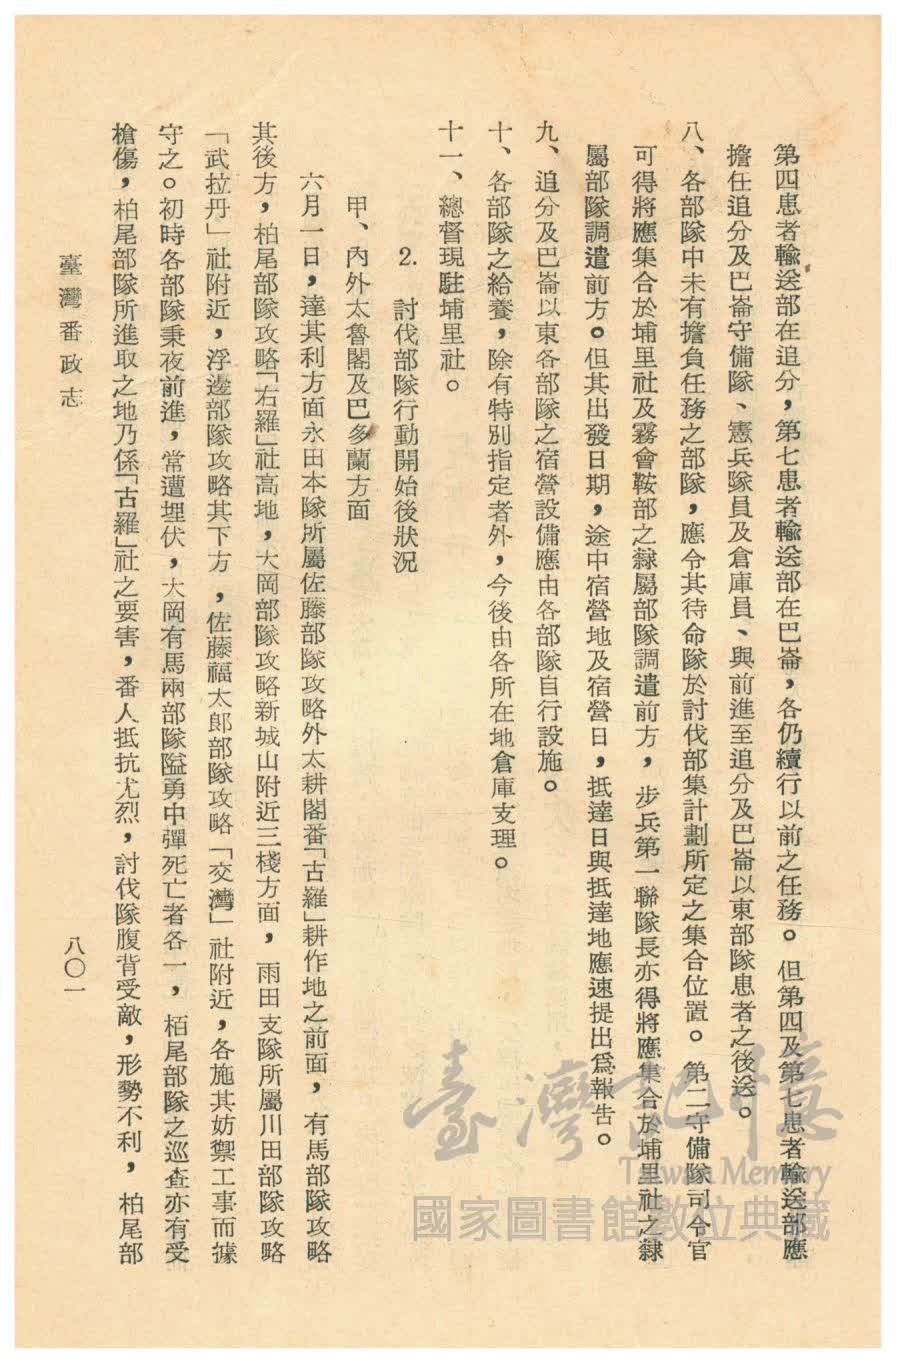 第四患者輸送部在追分，第七患者輸送部在巴崙，各仍續行以前之任務。但第四及第七患者輸送部應
擔任追分及巴崙守備隊、憲兵隊員及倉庫員、與前進至追分及巴崙以東部隊患者之後送。
八、各部隊中未有擔負任務之部隊，應令其待命隊於討伐部集計劃所定之集合位置。第二守備隊司令官
可得將應集合於埔里社及霧會鞍部之隸屬部隊調遣前方，步兵第一聯隊長亦得將應集合於埔里社之隸
屬部隊調遣前方。但其出發日期，途中宿營地及宿營日，抵達日與抵達地應速提出爲報告。
九、追分及巴崙以東各部隊之宿營設備應由各部隊自行設施。
十、各部隊之給養，除有特別指定者外，今後由各所在地倉庫支理。
十一、總督現駐埔里社。
2. 討伐部隊行動開始後狀況
甲、內外太魯閣及巴多蘭方面
六月一日，達其利方面永田本隊所屬佐藤部隊攻略外太耕閣番「古羅」耕作地之前面，有馬部隊攻略
其後方，柏尾部隊攻略「右羅」社高地，大岡部隊攻略新城山附近三棧方面，雨田支隊所屬川田部隊攻略
「武拉丹」社附近，浮邊部隊攻略其下方，佐藤福太郎部隊攻略「交灣」社附近，各施其妨禦工事而據
守之。初時各部隊秉夜前進，常遭埋伏，大岡有馬兩部隊隘勇中彈死亡者各一，栢尾部隊之巡查亦有受
槍傷，柏尾部隊所進取之地乃係「古羅」社之要害，番人抵抗尤烈，討伐隊腹背受敵，形勢不利，柏尾部
臺灣番政志
八〇一
臺灣記憶
Taiwan Memory
國家圖書館數位典藏